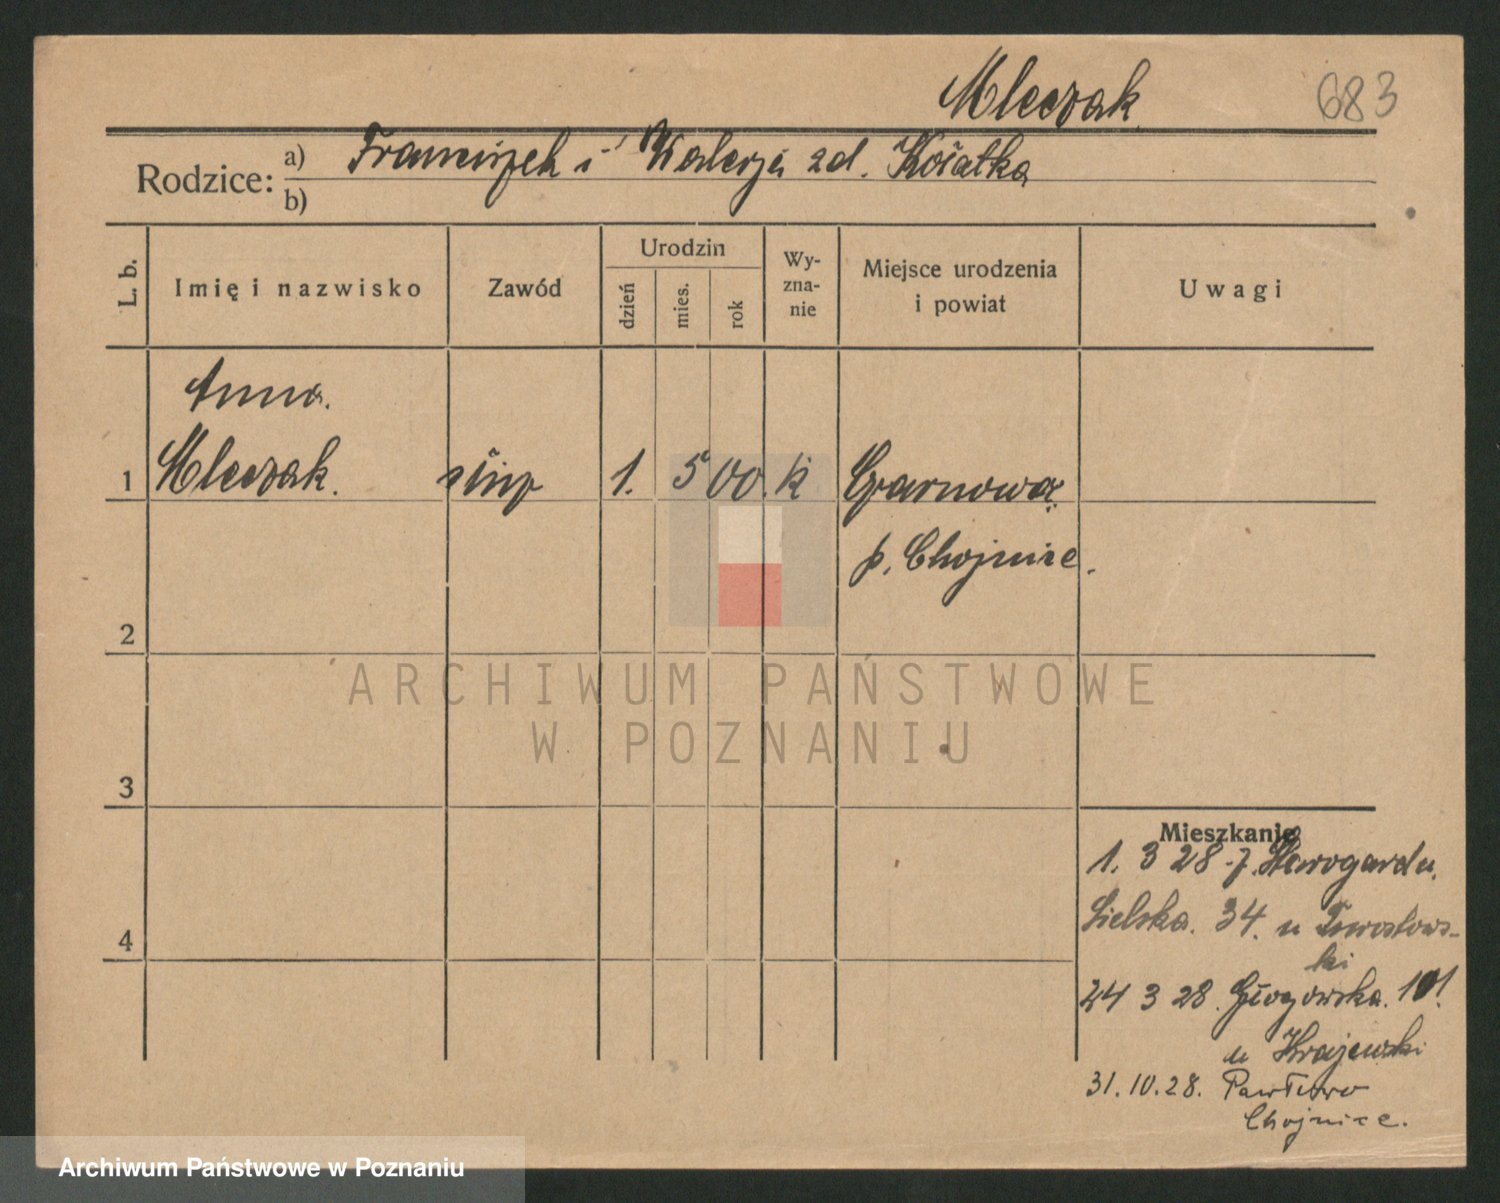 Mleczak
683
Rodzice:
a) Franciszek i Walerja zd. Kosiatka
b)
L. b.
Imię i nazwisko
Zawód
Urodzin
dzień
mies.
rok
Wy-
zna-
nie
Miejsce urodzenia
i powiat
Uwagi
Anna
1 Mleczak. służ 1. 5 00. k Czarnowo
p. Chojnice.
2
ARCHIWUM PAŃSTWOWE
W POZNANIU
3
Mieszkanie
1. 3 28 - z Starogardu,
Sielska. 34. u
4
ski
24 3 28. Głogowska. 101.
u Krajewski
31.10.28. Pawłowo
Chojnice.
Archiwum Państwowe w Poznaniu